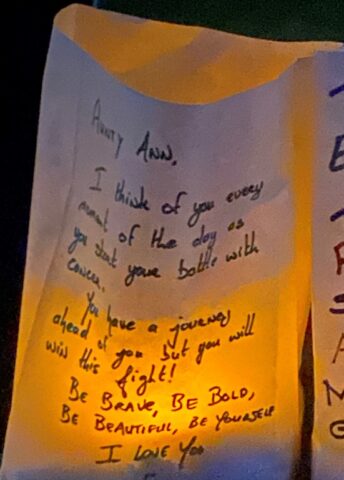 AUNTY ANN,
I think of you every
moment of the day as
you start your battle with
cancer.
You have a journey
ahead of you but you will
win this fight!
BE BRAVE, BE BOLD,
BE BEAUTIFUL, BE YOURSELF
I LOVE YOU